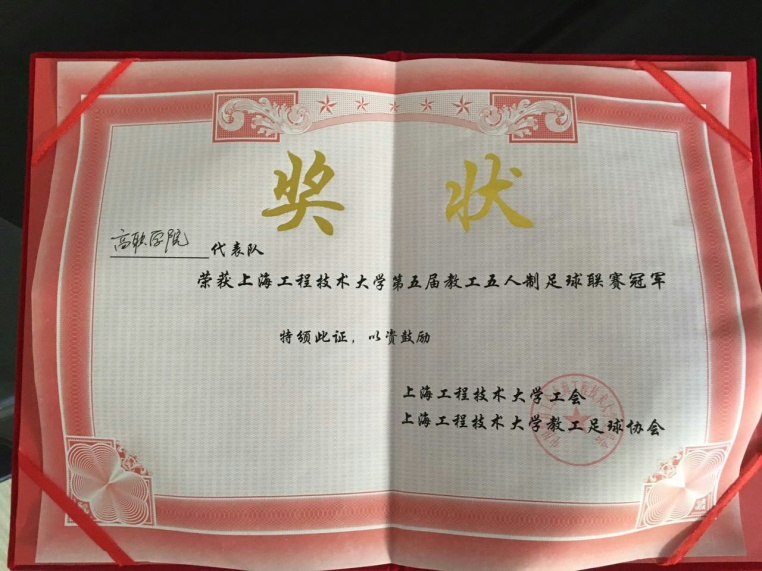 奖状
高职学院代表队
荣获上海工程技术大学第五届教工五人制足球联赛冠军
特颁此证，以资鼓励
上海工程技术大学工会
上海工程技术大学教工足球协会